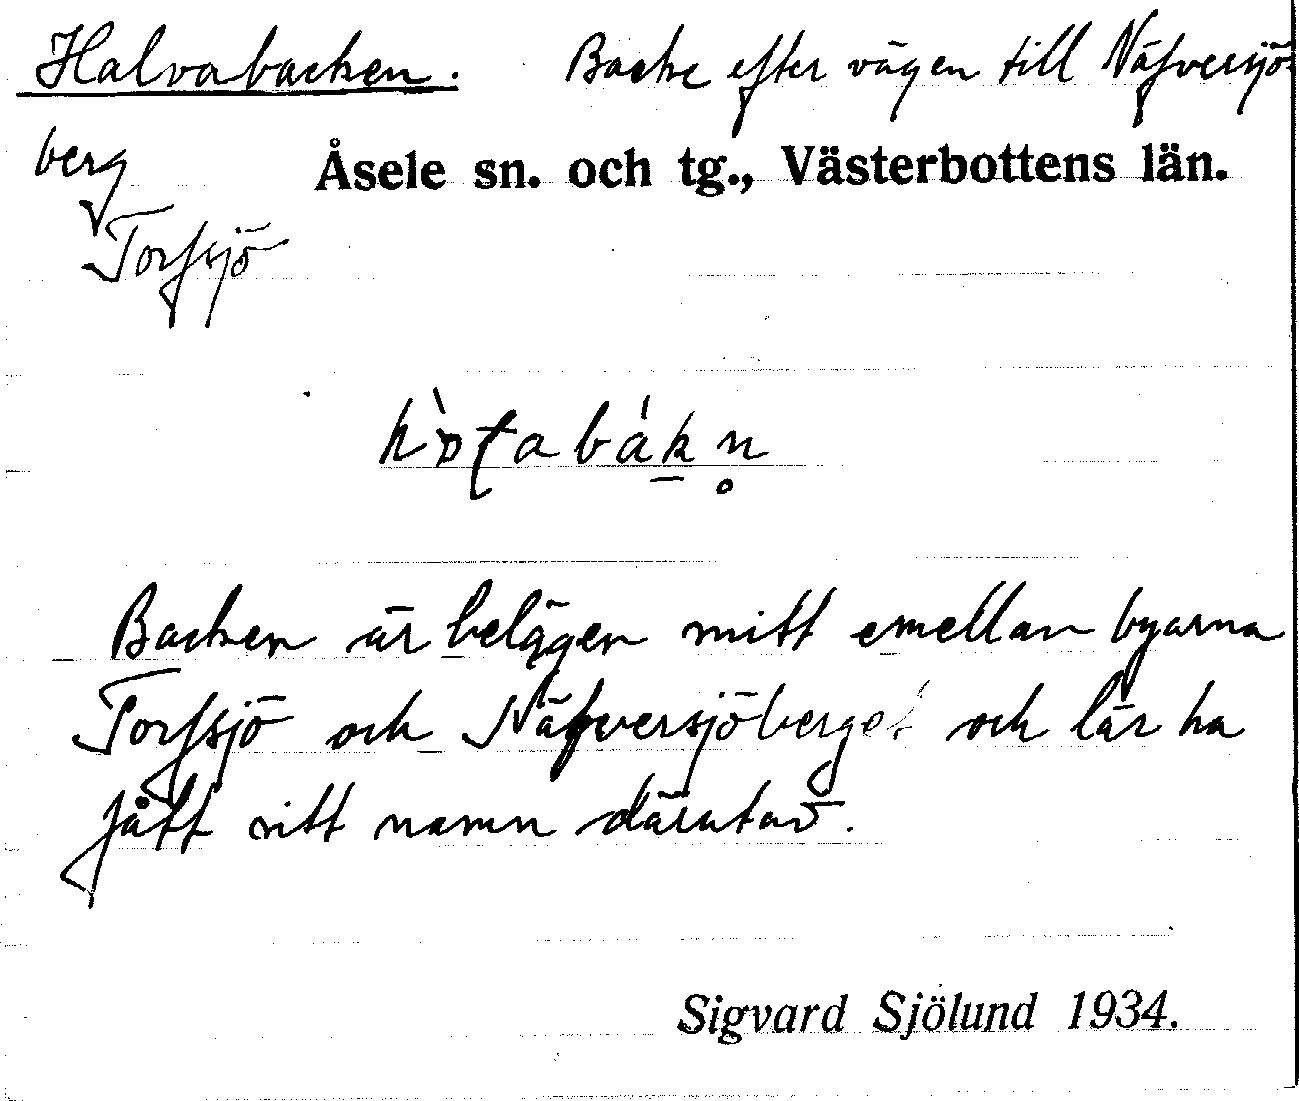 Halvabacken. Backe efter vägen till Näfversjö-
berg
Åsele sn. och tg., Västerbottens län.
Torfsjö
Backen är belägen mitt emellan byarna
Torfsjö och Näfversjöberget och lär ha
fått sitt namn därutav.
Sigvard Sjölund 1934.